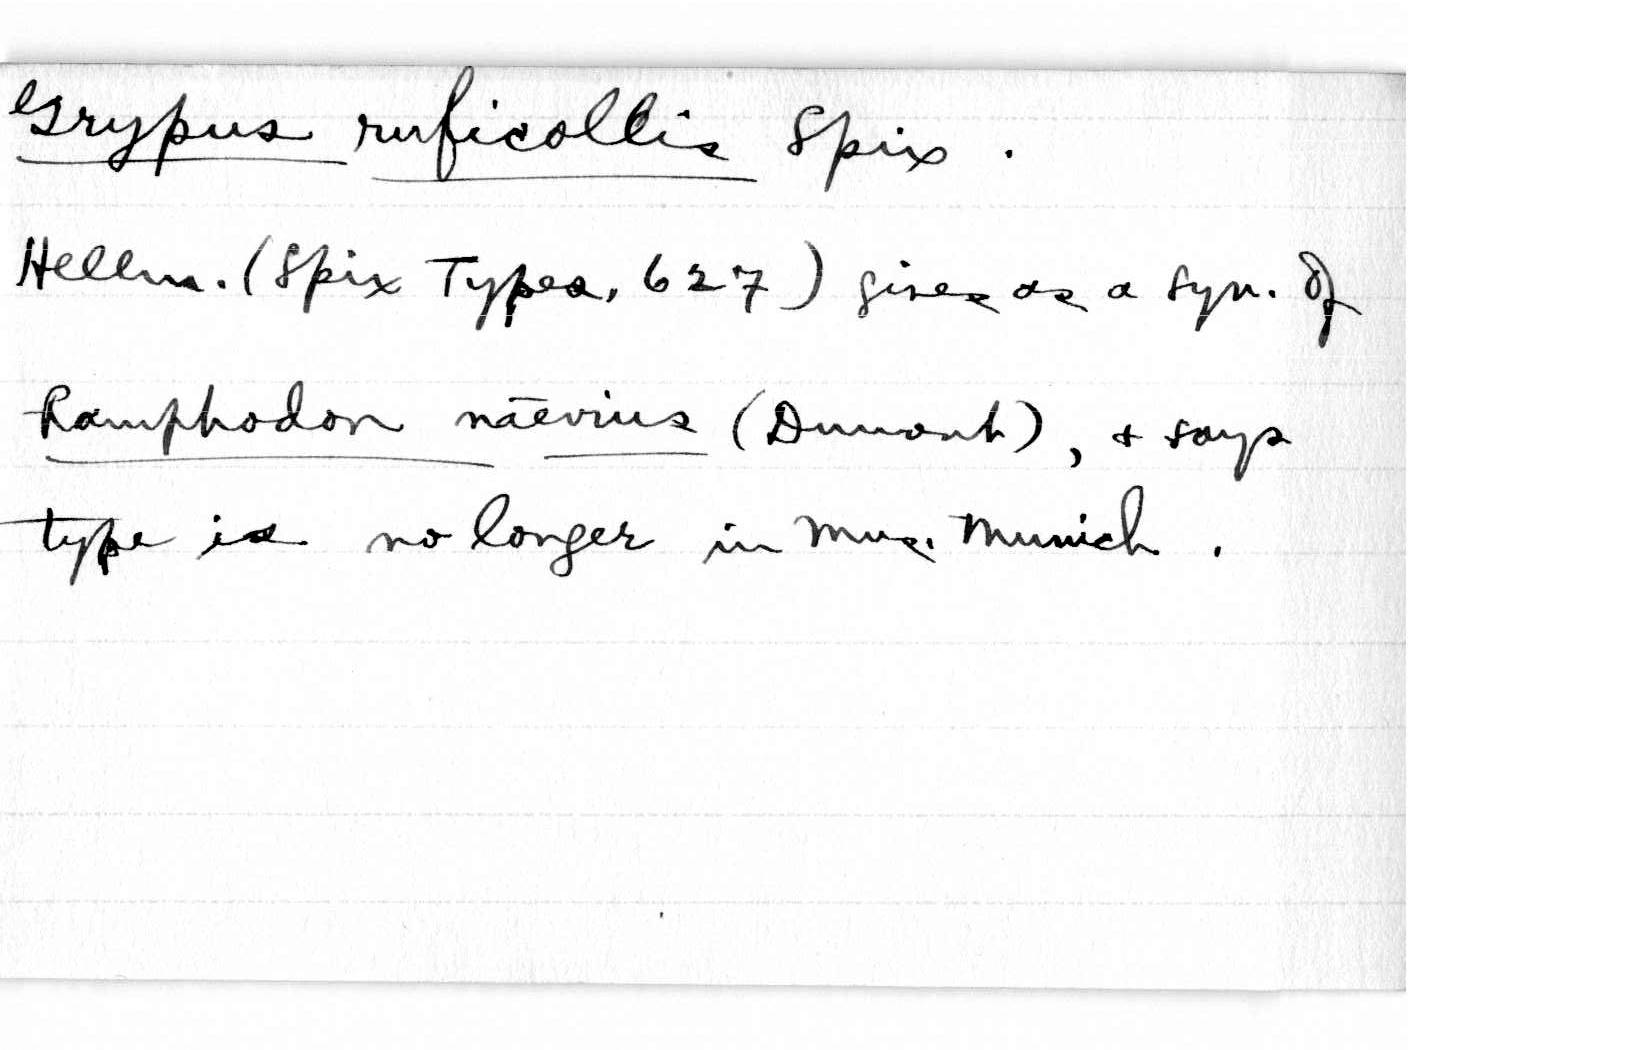 Grypus ruficollis Spix.
Hellm. (Spix Types, 627) gives as a syn. of
Ramphodon naevius (Dumont), & says
type is no longer in Mus. Munich.